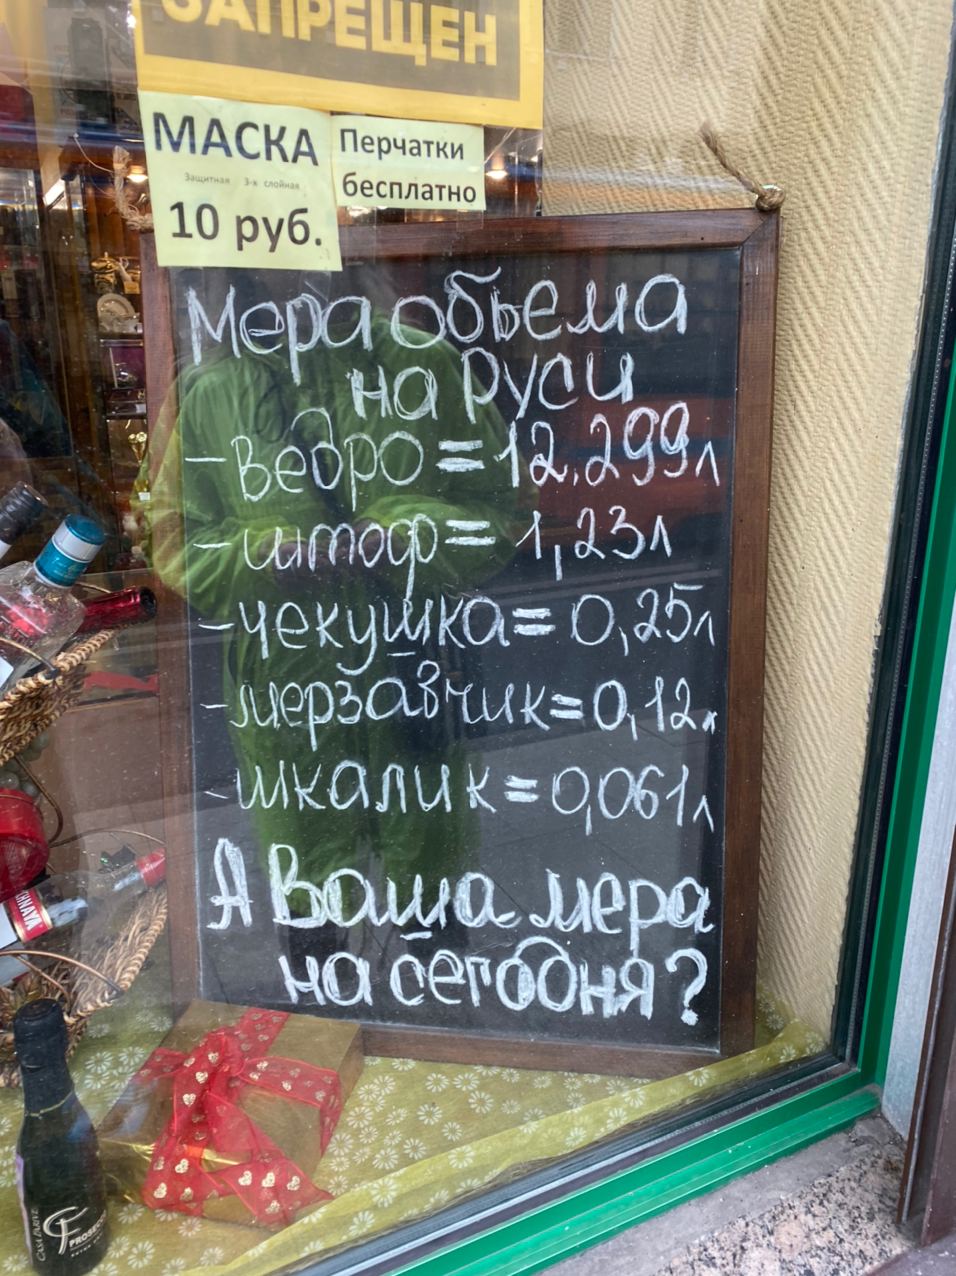 ЗАПРЕЩЕН
МАСКА
Защитная 3-х слойная
10 руб.
Перчатки
бесплатно
Мера обьема
на Руси
- ведро = 12.299л
- штоф = 1,23л
- чекушка = 0,25л
- мерзавчик = 0,12л
- шкалик = 0,061л
А Ваша мера
на сегодня?
PROSECCO